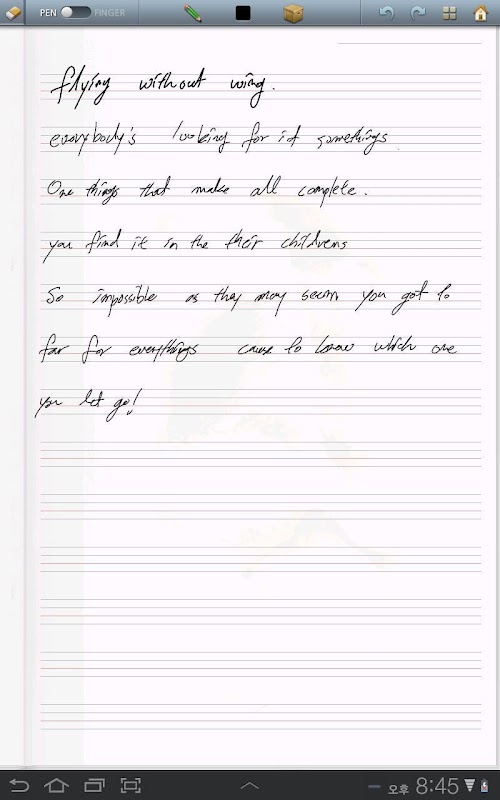 PEN FINGER
flying without wing.
everybody's looking for it somethings.
One things that make all complete.
you find it in the their childrens
So impossible as they may seem you got to
far for everythings cause to know which one
you let go!
오후 8:45